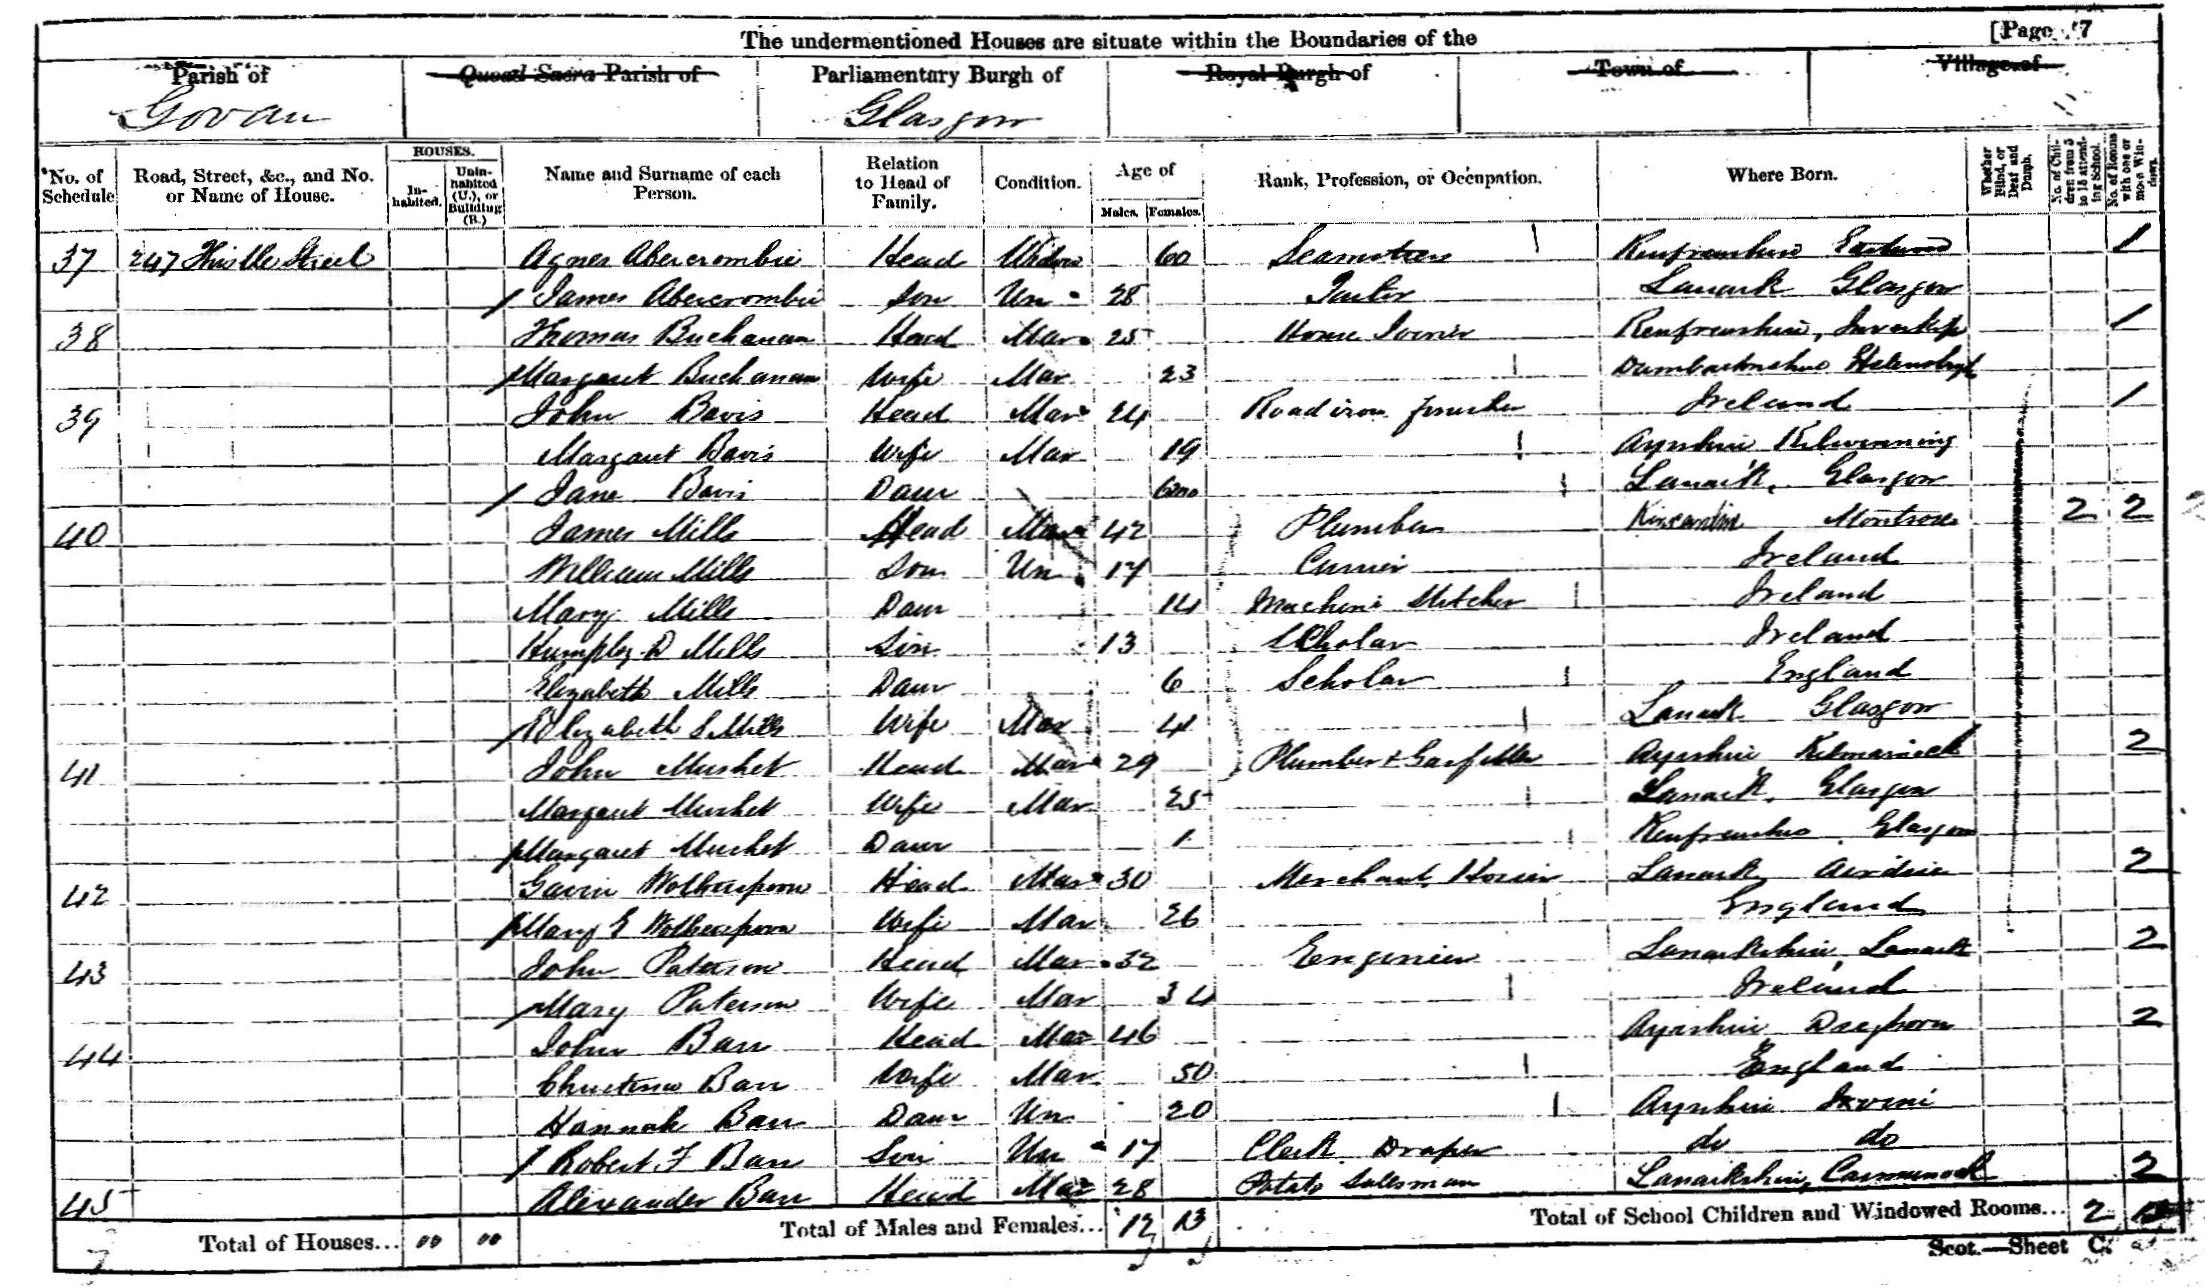 The undermentioned Houses are situate within the Boundaries of the [Page 7
Parish of Quoad Sacra Parish of Parliamentary Burgh of Royal Burgh of Town of Village of
Govan Glasgow
No. of Schedule Road, Street, &c., and No. or Name of House. HOUSES. Inhabited. Uninhabited (U.), or Building (B.) Name and Surname of each Person. Relation to Head of Family. Condition. Age of Males. Females. Rank, Profession, or Occupation. Where Born. Whether Blind, or Deaf and Dumb. No. of Children from 5 to 15 attending School. No. of Rooms with one or more Windows.
37 247 Thistle Street Agnes Abercrombie Head Widow 60 Seamstress Renfrewshire Eastwood 1
James Abercrombie Son Un 28 Tailor Lanark Glasgow
38 Thomas Buchanan Head Mar 25 House Joiner Renfrewshire, Inverkip 1
Margaret Buchanan Wife Mar 23 Dumbartonshire Helensburgh
39 John Bavis Head Mar 24 Road iron 1 Ireland
Margaret Bavis Wife Mar 19 Ayrshire Kilwinning
Jane Bavis Daur 6mo Lanark, Glasgow
40 James Mills Head Mar 42 Plumber Kincardine Montrose 2 2
William Mills Son Un 17 Currier Ireland
Mary Mills Daur 14 Machine Stitcher Ireland
Humphy D Mills Son 13 Scholar Ireland
Elizabeth Mills Daur 6 Scholar England
Elizabeth S Mills Wife Mar 4 Lanark Glasgow
41 John Mushet Head Mar 29 Plumber & Gasfitter Ayrshire Kilmarnock 2
Margaret Mushet Wife Mar 25 Lanark, Glasgow
Margaret Mushet Daur 1 Renfrewshire Glasgow
42 Gavin Wotherspoon Head Mar 30 Merchant, Hosier Lanark Airdrie 2
Mary E Wotherspoon Wife Mar 26 England
43 John Paterson Head Mar 32 Engineer Lanarkshire, Lanark 2
Mary Paterson Wife Mar 34 Ireland
44 John Barr Head Mar 46 Ayrshire Dreghorn 2
Christina Barr Wife Mar 50 England
Hannah Barr Daur Un 20 Ayrshire Irvine
Robert F Barr Son Un 17 Clerk Draper do do
45 Alexander Barr Head Mar 28 Potato Salesman Lanarkshire, Carmunnock 2
Total of Houses... Total of Males and Females... 12 13 Total of School Children and Windowed Rooms... 2
Scot.—Sheet C.